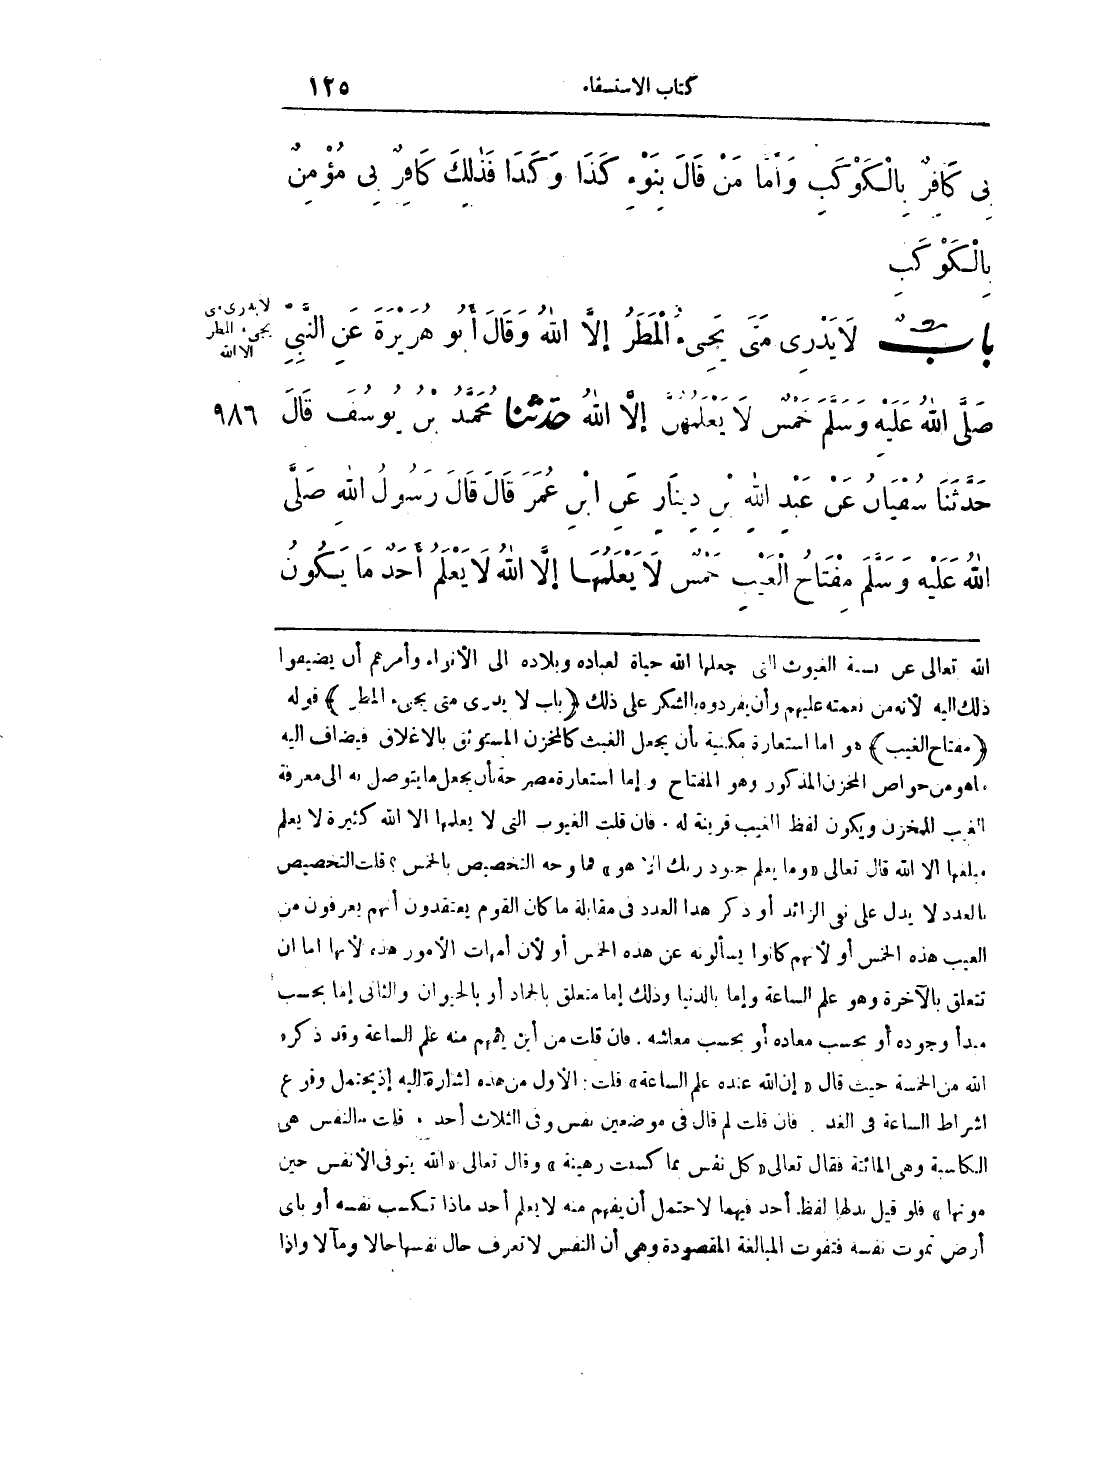 كتاب الاستسقاء ١٢٥
بِي كَافِرٌ بِالْكَوْكَبِ وَأَمَّا مَنْ قَالَ بِنَوْءِ كَذَا وَكَذَا فَذٰلِكَ كَافِرٌ بِي مُؤْمِنٌ
بِالْكَوْكَبِ
بابٌ لَا يَدْرِي مَتَى يَجِيءُ الْمَطَرُ إِلَّا اللهُ وَقَالَ أَبُو هُرَيْرَةَ عَنِ النَّبِيِّ
لا يدرى متى
يجىء المطر
الا الله
صَلَّى اللهُ عَلَيْهِ وَسَلَّمَ خَمْسٌ لَا يَعْلَمُهُنَّ إِلَّا اللهُ حَدَّثَنَا مُحَمَّدُ بْنُ يُوسُفَ قَالَ ٩٨٦
حَدَّثَنَا سُفْيَانُ عَنْ عَبْدِ اللهِ بْنِ دِينَارٍ عَنِ ابْنِ عُمَرَ قَالَ قَالَ رَسُولُ اللهِ صَلَّى
اللهُ عَلَيْهِ وَسَلَّمَ مِفْتَاحُ الْغَيْبِ خَمْسٌ لَا يَعْلَمُهَا إِلَّا اللهُ لَا يَعْلَمُ أَحَدٌ مَا يَكُونُ
الله تعالى عن نسبة الغيوث التى جعلها الله حياة لعباده وبلاده الى الأنواء وأمرهم أن يضيفوا
ذلك اليه لأنه من نعمته عليهم وأن يفردوه بالشكر على ذلك ﴿باب لا يدرى متى يجىء المطر﴾ قوله
﴿مفتاح الغيب﴾ هو اما استعارة مكنية بأن يجعل الغيب كالمخزن المستوثق بالاغلاق فيضاف اليه
ماهو من خواص المخزن المذكور وهو المفتاح و إما استعارة مصرحة بأن يجعل ما يتوصل به الى معرفة
الغيب للمخزن ويكون لفظ الغيب قرينة له . فان قلت الغيوب التى لا يعلمها الا الله كثيرة لا يعلم
مبلغها الا الله قال تعالى «وما يعلم جنود ربك الا هو» فما وجه التخصيص بالخمس ؟ قلت التخصيص
بالعدد لا يدل على نفى الزائد أو ذكر هذا العدد فى مقابلة ما كان القوم يعتقدون أنهم يعرفون من
الغيب هذه الخمس أو لأنهم كانوا يسألونه عن هذه الخمس أو لأن أمهات الأمور هذه لأنها اما ان
تتعلق بالآخرة وهو علم الساعة وإما بالدنيا وذلك إما متعلق بالجماد أو بالحيوان والثانى إما بحسب
مبدأ وجوده أو بحسب معاده أو بحسب معاشه . فان قلت من أين يفهم منه علم الساعة وقد ذكره
الله من الخمسة حيث قال « إن الله عنده علم الساعة» قلت : الأول من هذه اشارة اليه إذ يحتمل وقوع
اشراط الساعة فى الغد . فان قلت لم قال فى موضعين نفس وفى الثلاث أحد . قلت النفس هى
الكاسبة وهى المائتة فقال تعالى «كل نفس بما كسبت رهينة » وقال تعالى «الله يتوفى الأنفس حين
موتها » فلو قيل بدلها لفظ أحد فيهما لاحتمل أن يفهم منه لا يعلم أحد ماذا تكسب نفسه أو باى
أرض تموت نفسه فتفوت المبالغة المقصودة وهى أن النفس لا تعرف حال نفسها حالا ومآلا واذا